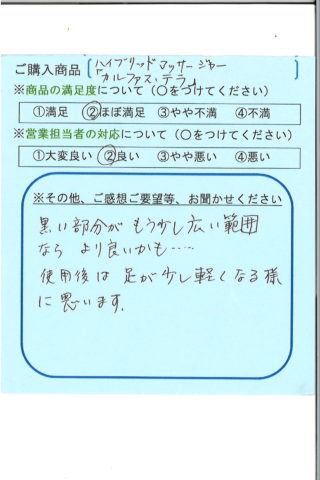 ご購入商品 [ハイブリッドマッサージャー
「カルファス・テラ」]
※商品の満足度について（○をつけてください）
①満足 ②ほぼ満足 ③やや不満 ④不満
※営業担当者の対応について（○をつけてください）
①大変良い ②良い ③やや悪い ④悪い
※その他、ご感想ご要望等、お聞かせください
黒い部分が もう少し広い範囲
なら より良いかも……
使用後は 足が少し軽くなる様
に思います。